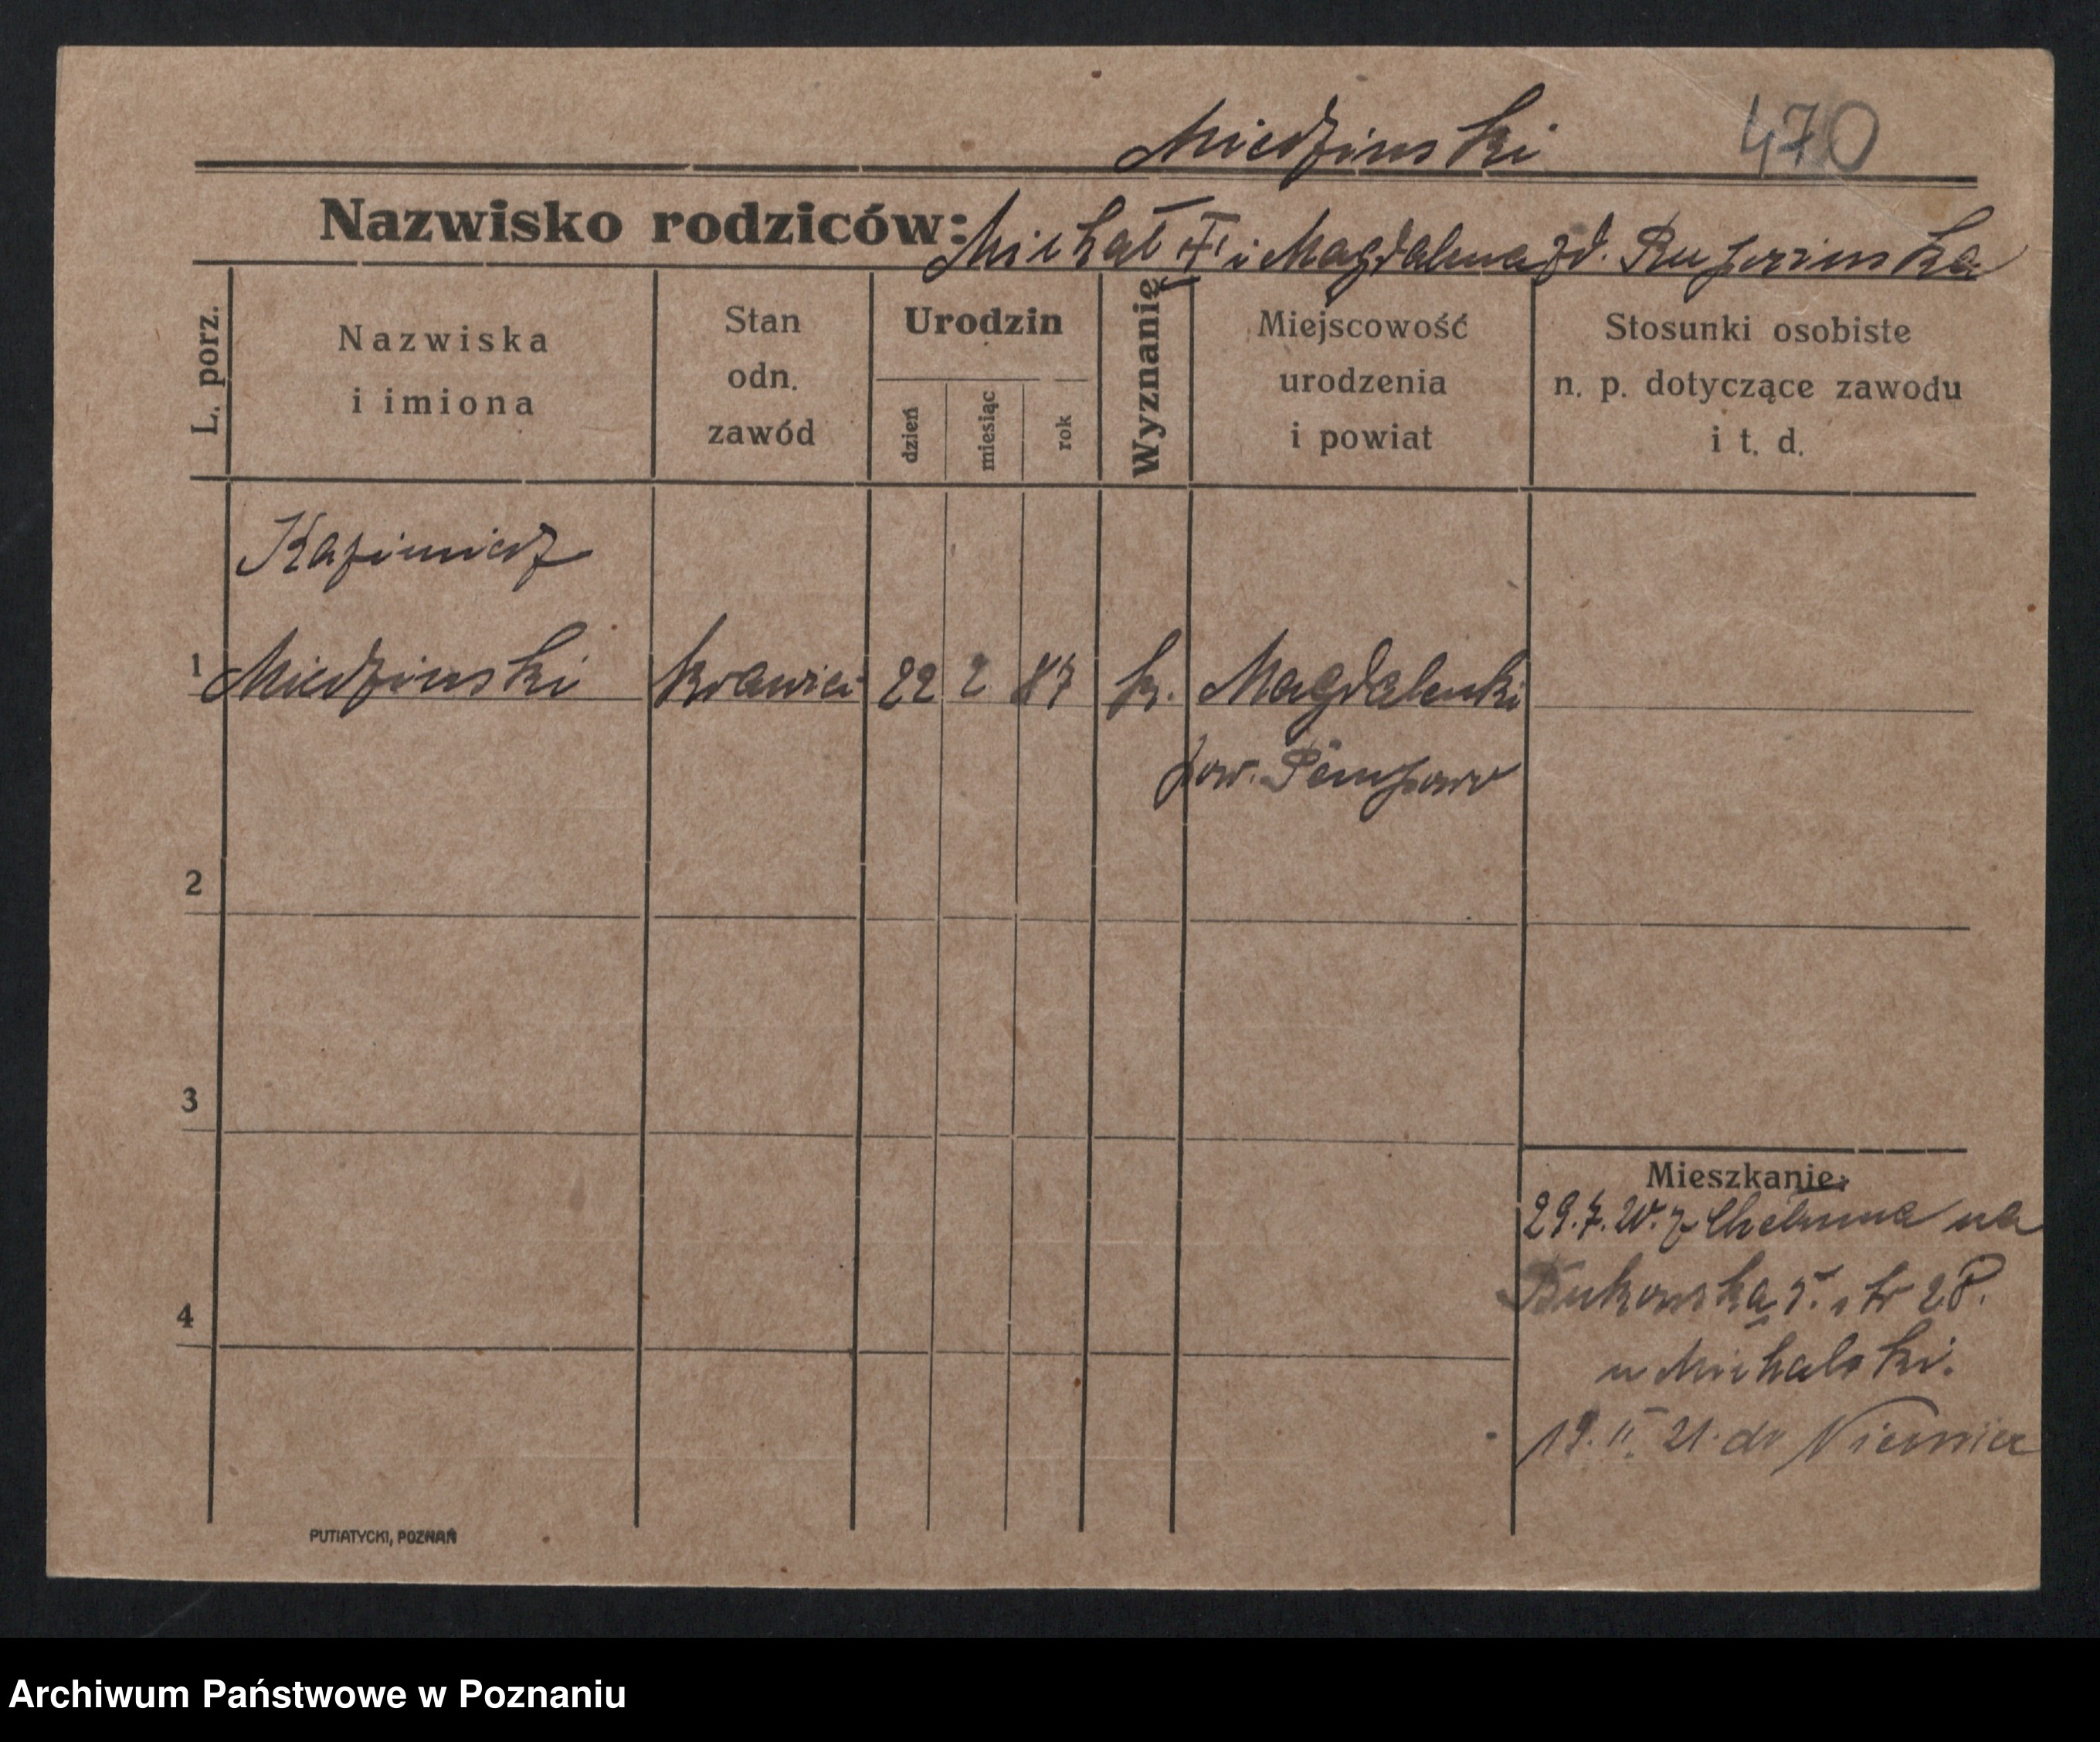 Miedzinski 470
Nazwisko rodziców: Michał F i Magdalena zd.
L. porz.
Nazwiska i imiona
Stan odn. zawód
Urodzin
dzień
miesiąc
rok
Wyznanie
Miejscowość urodzenia i powiat
Stosunki osobiste n. p. dotyczące zawodu i t. d.
Kazimierz
1 Miedzinski krawiec 22 2 87 k. Magdalenki
pow. Pempowo
2
3
Mieszkanie:
29.7.20. z Chełmna na
4 Bukowska 5. tr 28.
u Michalski.
19. II. 21. do Niemiec
PUTIATYCKI, POZNAŃ
Archiwum Państwowe w Poznaniu